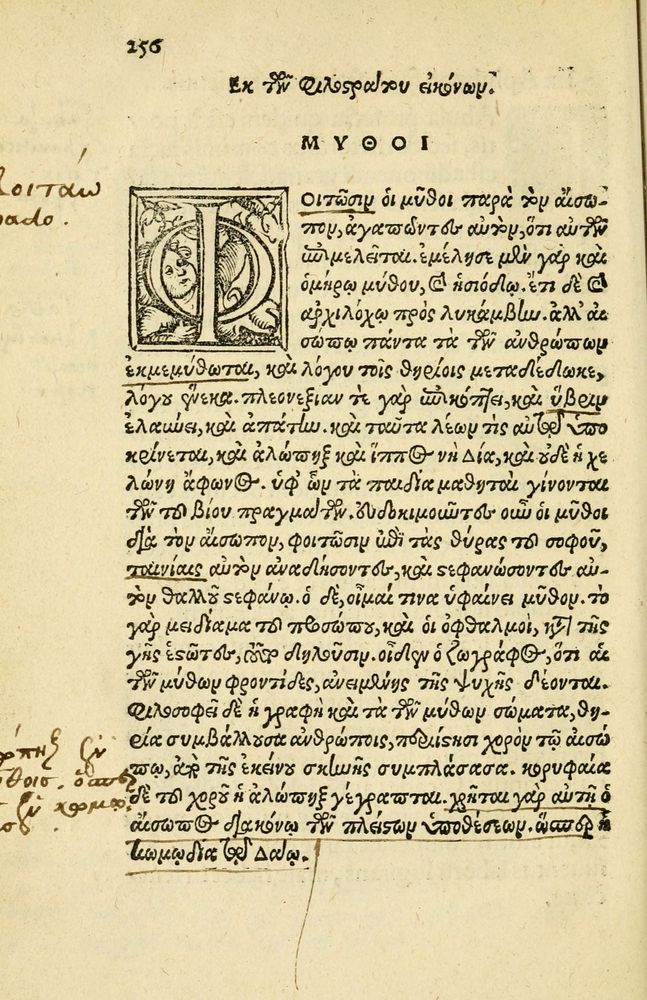 256
Εκ τῶν Φιλοστράτου εἰκόνων.
ΜΥΘΟΙ
Φοιτῶσιν οἱ μῦθοι παρὰ τὸν αἴσω-
πον, ἀγαπῶντες αὐτὸν, ὅτι αὐτῶν
ἐπιμελεῖται. ἐμέλησε μὲν γὰρ καὶ
ὁμήρῳ μύθου, καὶ ἡσιόδῳ. ἔτι δὲ καὶ
ἀρχιλόχῳ πρὸς λυκάμβην. ἀλλ' αἰ
σώπῳ πάντα τὰ τῶν ἀνθρώπων
ἐκμεμύθωται, καὶ λόγου τοῖς θηρίοις μεταδέδωκε,
λόγου ἕνεκα. πλεονεξίαν τε γὰρ ἐπικόπτει, καὶ ὕβριν
ἐλαύνει, καὶ ἀπάτην. καὶ ταῦτα λέων τὶς αὐτῷ ὑπο
κρίνεται, καὶ ἀλώπηξ καὶ ἵππος νὴ Δία, καὶ οὐδὲ ἡ χε
λώνη ἄφωνος. ὑφ' ὧν τὰ παιδία μαθηταὶ γίνονται
τῶν τοῦ βίου πραγμάτων. εὐδοκιμοῦντες οὖν οἱ μῦθοι
διὰ τὸν αἴσωπον, φοιτῶσιν ἐπὶ τὰς θύρας τοῦ σοφοῦ,
ταινίαις αὐτὸν ἀναδήσοντες, καὶ στεφανώσοντες αὐ-
τὸν θαλλοῦ στεφάνῳ. ὁ δὲ, οἶμαί τινα ὑφαίνει μῦθον. τὸ
γὰρ μειδίαμα τοῦ προσώπου, καὶ οἱ ὀφθαλμοὶ, κατὰ τῆς
γῆς ἑστῶτες, τοῦτο δηλοῦσιν. οἶδεν ὁ ζωγράφος, ὅτι αἱ
τῶν μύθων φροντίδες, ἀνειμένης τῆς ψυχῆς δέονται.
Φιλοσοφεῖ δὲ ἡ γραφὴ καὶ τὰ τῶν μύθων σώματα, θη-
ρία συμβάλλουσα ἀνθρώποις, περιίστησι χορὸν τῷ αἰσώ
πῳ, ἀπὸ τῆς ἐκείνου σκηνῆς συμπλάσασα. κορυφαία
δὲ τοῦ χοροῦ ἡ ἀλώπηξ γέγραπται. χρῆται γὰρ αὐτῇ ὁ
αἴσωπος διακόνῳ τῶν πλείστων ὑποθέσεων. ὥσπερ ἡ
κωμῳδία τῷ Δάῳ.